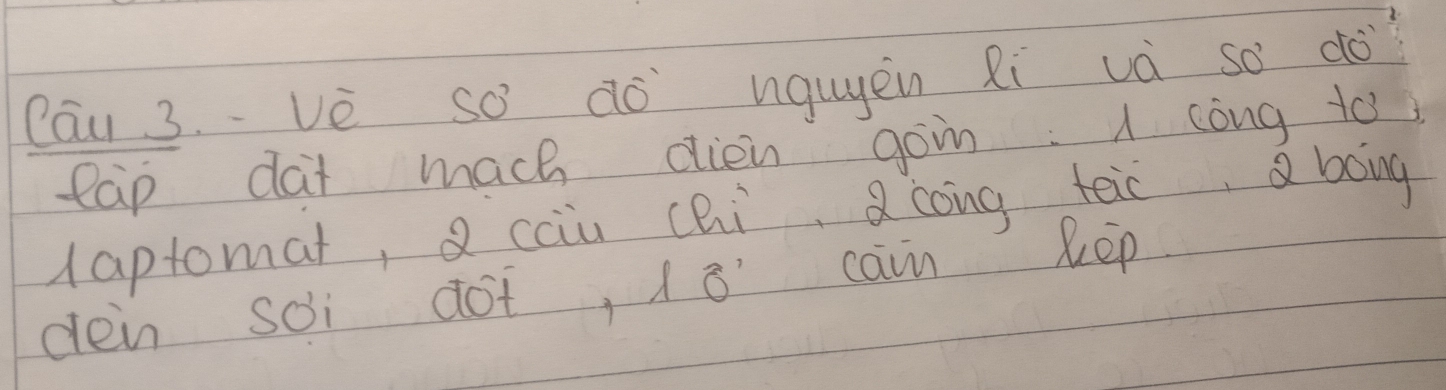 Câu 3. - Vẽ sơ đồ nguyên lí và sơ đồ
lắp đặt mạch điện gồm : 1 công tơ,
1 aptomat, 2 cầu chì, 2 công tắc, 2 bóng
đèn sợi đốt, 1 ổ cắm kép.